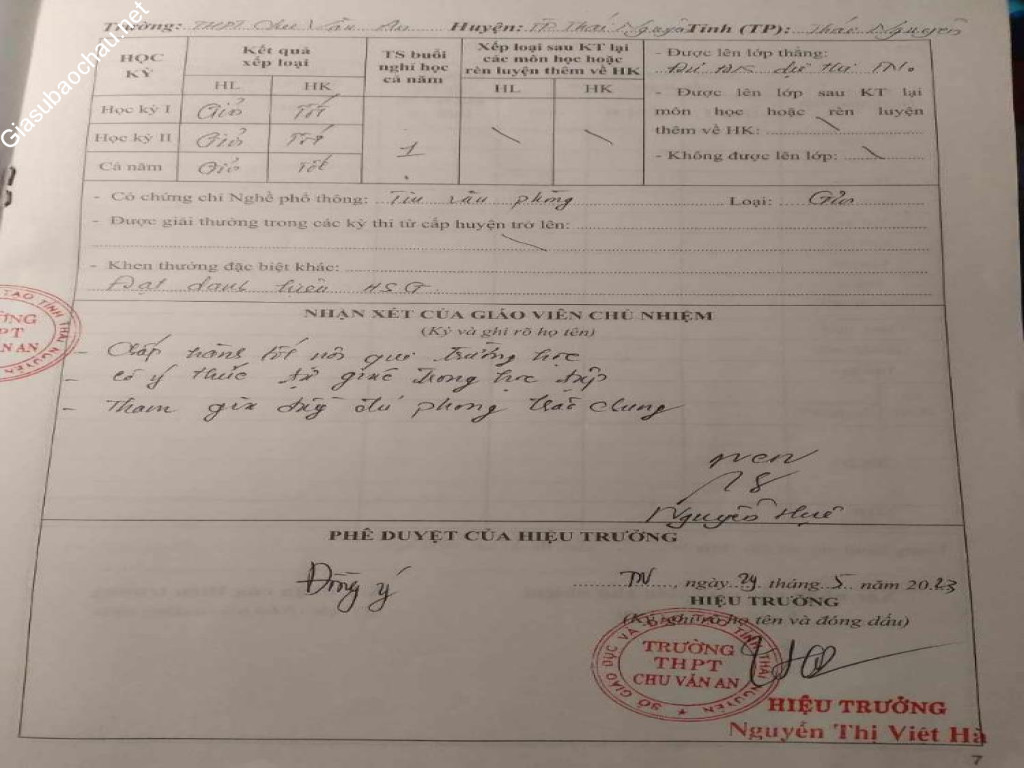 Trường: THPT Chu Văn An Huyện: TP Thái Nguyên Tỉnh (TP): Thái Nguyên
HỌC KỲ
Kết quả xếp loại
HL HK
TS buổi nghỉ học cả năm
Xếp loại sau KT lại các môn học hoặc rèn luyện thêm về HK
HL HK
Học kỳ I Giỏi Tốt
Học kỳ II Giỏi Tốt
Cả năm Giỏi Tốt
1
- Được lên lớp thẳng:
Đủ ĐK dự thi TN.
- Được lên lớp sau KT lại
môn học hoặc rèn luyện
thêm về HK:
- Không được lên lớp:
- Có chứng chỉ Nghề phổ thông: Tin văn phòng Loại: Giỏi
- Được giải thưởng trong các kỳ thi từ cấp huyện trở lên:
- Khen thưởng đặc biệt khác:
Đạt danh hiệu HSG
NHẬN XÉT CỦA GIÁO VIÊN CHỦ NHIỆM
(Ký và ghi rõ họ tên)
- Chấp hành tốt nội qui trường học
- Có ý thức tự giác trong học tập
- Tham gia đầy đủ phong trào chung
GVCN
Nguyễn Huệ
PHÊ DUYỆT CỦA HIỆU TRƯỞNG
Đồng ý
TN, ngày 29 tháng 5 năm 2023
HIỆU TRƯỞNG
(Ký, ghi rõ họ tên và đóng dấu)
SỞ GIÁO DỤC VÀ ĐÀO TẠO TỈNH THÁI NGUYÊN
TRƯỜNG
THPT
CHU VĂN AN
HIỆU TRƯỞNG
Nguyễn Thị Việt Hà
7
TẠO TỈNH THÁI NGUYÊN
ỜNG
PT
VĂN AN
Giasubaochau.net